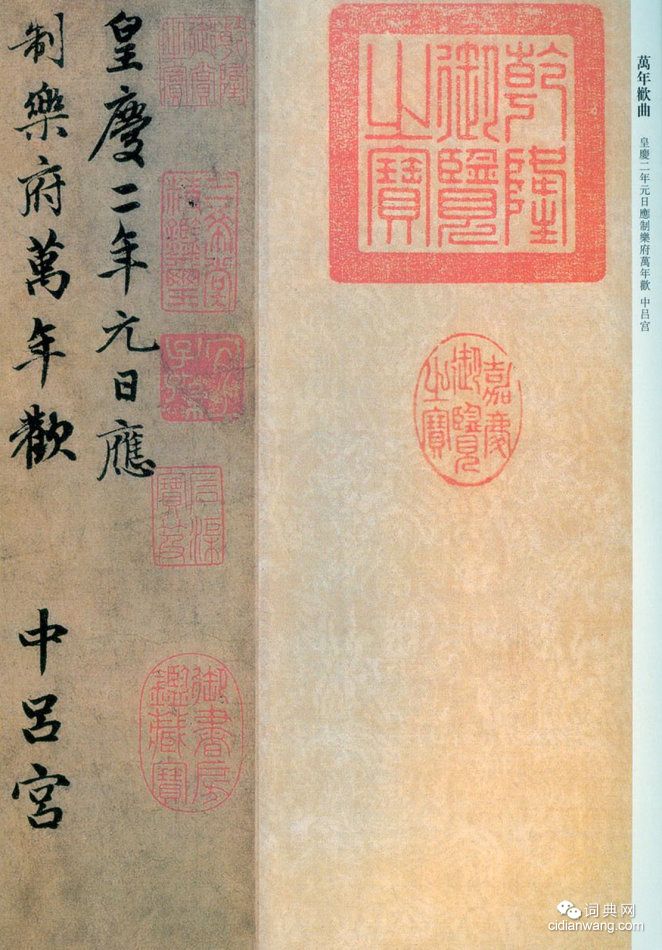 萬年歡曲
皇慶二年元日應制樂府萬年歡 中吕宮
乾隆
御覽
之寶
嘉慶
御覽
之寶
三希堂
精鑑璽
宜子孫
石渠
寶笈
御書房
鑑藏寶
皇慶二年元日應
制樂府萬年歡 中呂宮
词典网
cidianwang.com